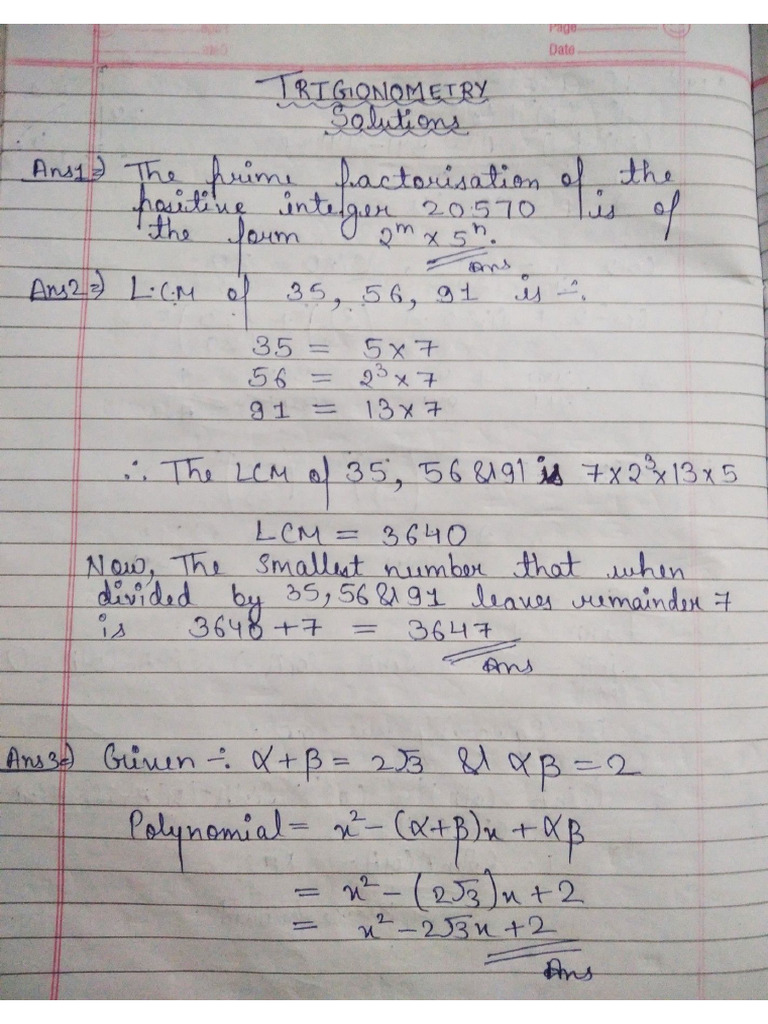 Page
Date
TRIGIONOMETRY
Solutions
Ans1⇒ The prime factorisation of the
positive integer 20570 is of
the form 2^m × 5^n.
Ans
Ans2⇒ L.C.M of 35, 56, 91 is ÷
35 = 5×7
56 = 2³×7
91 = 13×7
∴ The LCM of 35, 56 & 91 is 7×2³×13×5
LCM = 3640
Now, The smallest number that when
divided by 35, 56 & 91 leaves remainder 7
is 3640+7 = 3647
Ans
Ans3⇒ Given ÷ α+β = 2√3 & αβ = 2
Polynomial = x² - (α+β)x + αβ
= x² - (2√3)x + 2
= x² - 2√3x + 2
Ans